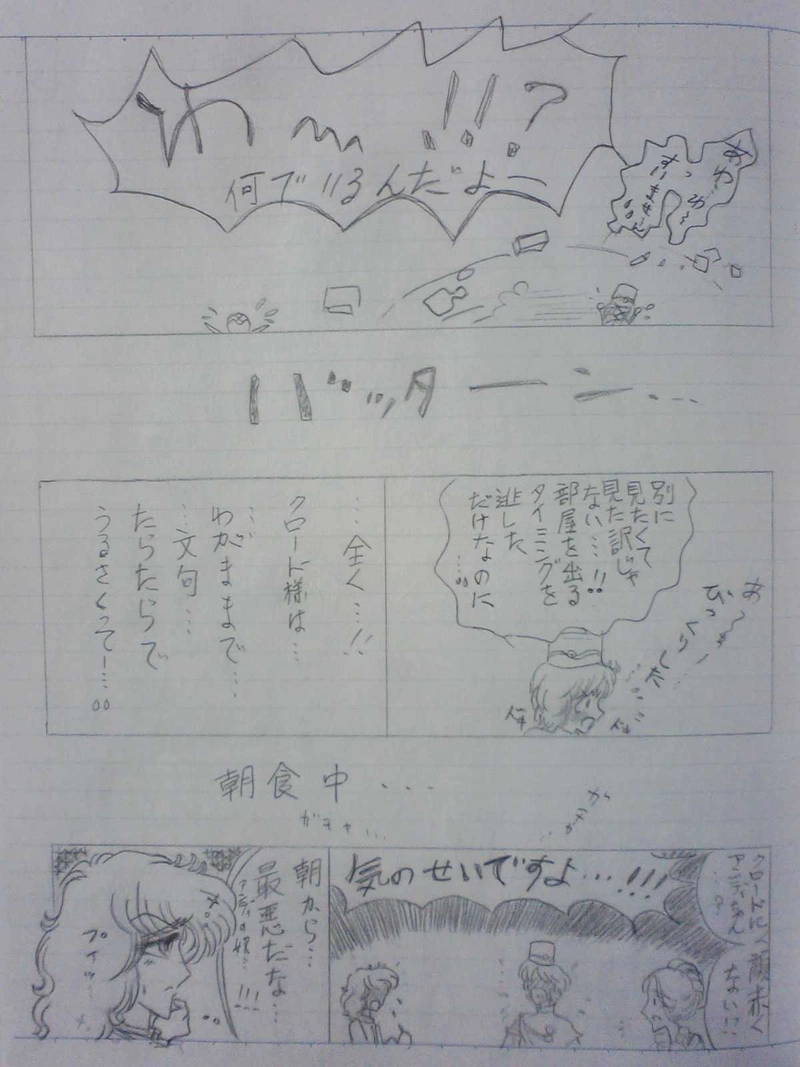 わーー!!?
何でいるんだよー
わー わー
すいませーん
バッターン…
別に
見たくて
見た訳じゃ
ない…!!
部屋を出る
タイミングを
逃した
だけなのに
……
お〜
びっくりした…
ドキ
ドキ
…全く…!!
クロード様は…
…わがままで…
…文句…
たらたらで
うるさくって…
朝食中…
ガチャ…
ガチャ…
クロードにく
アンディさん
…?
顔赤く
ない!?
気のせいですよ…!!!
朝から…
最悪だな…
アンディの奴…!!!
プイッ…